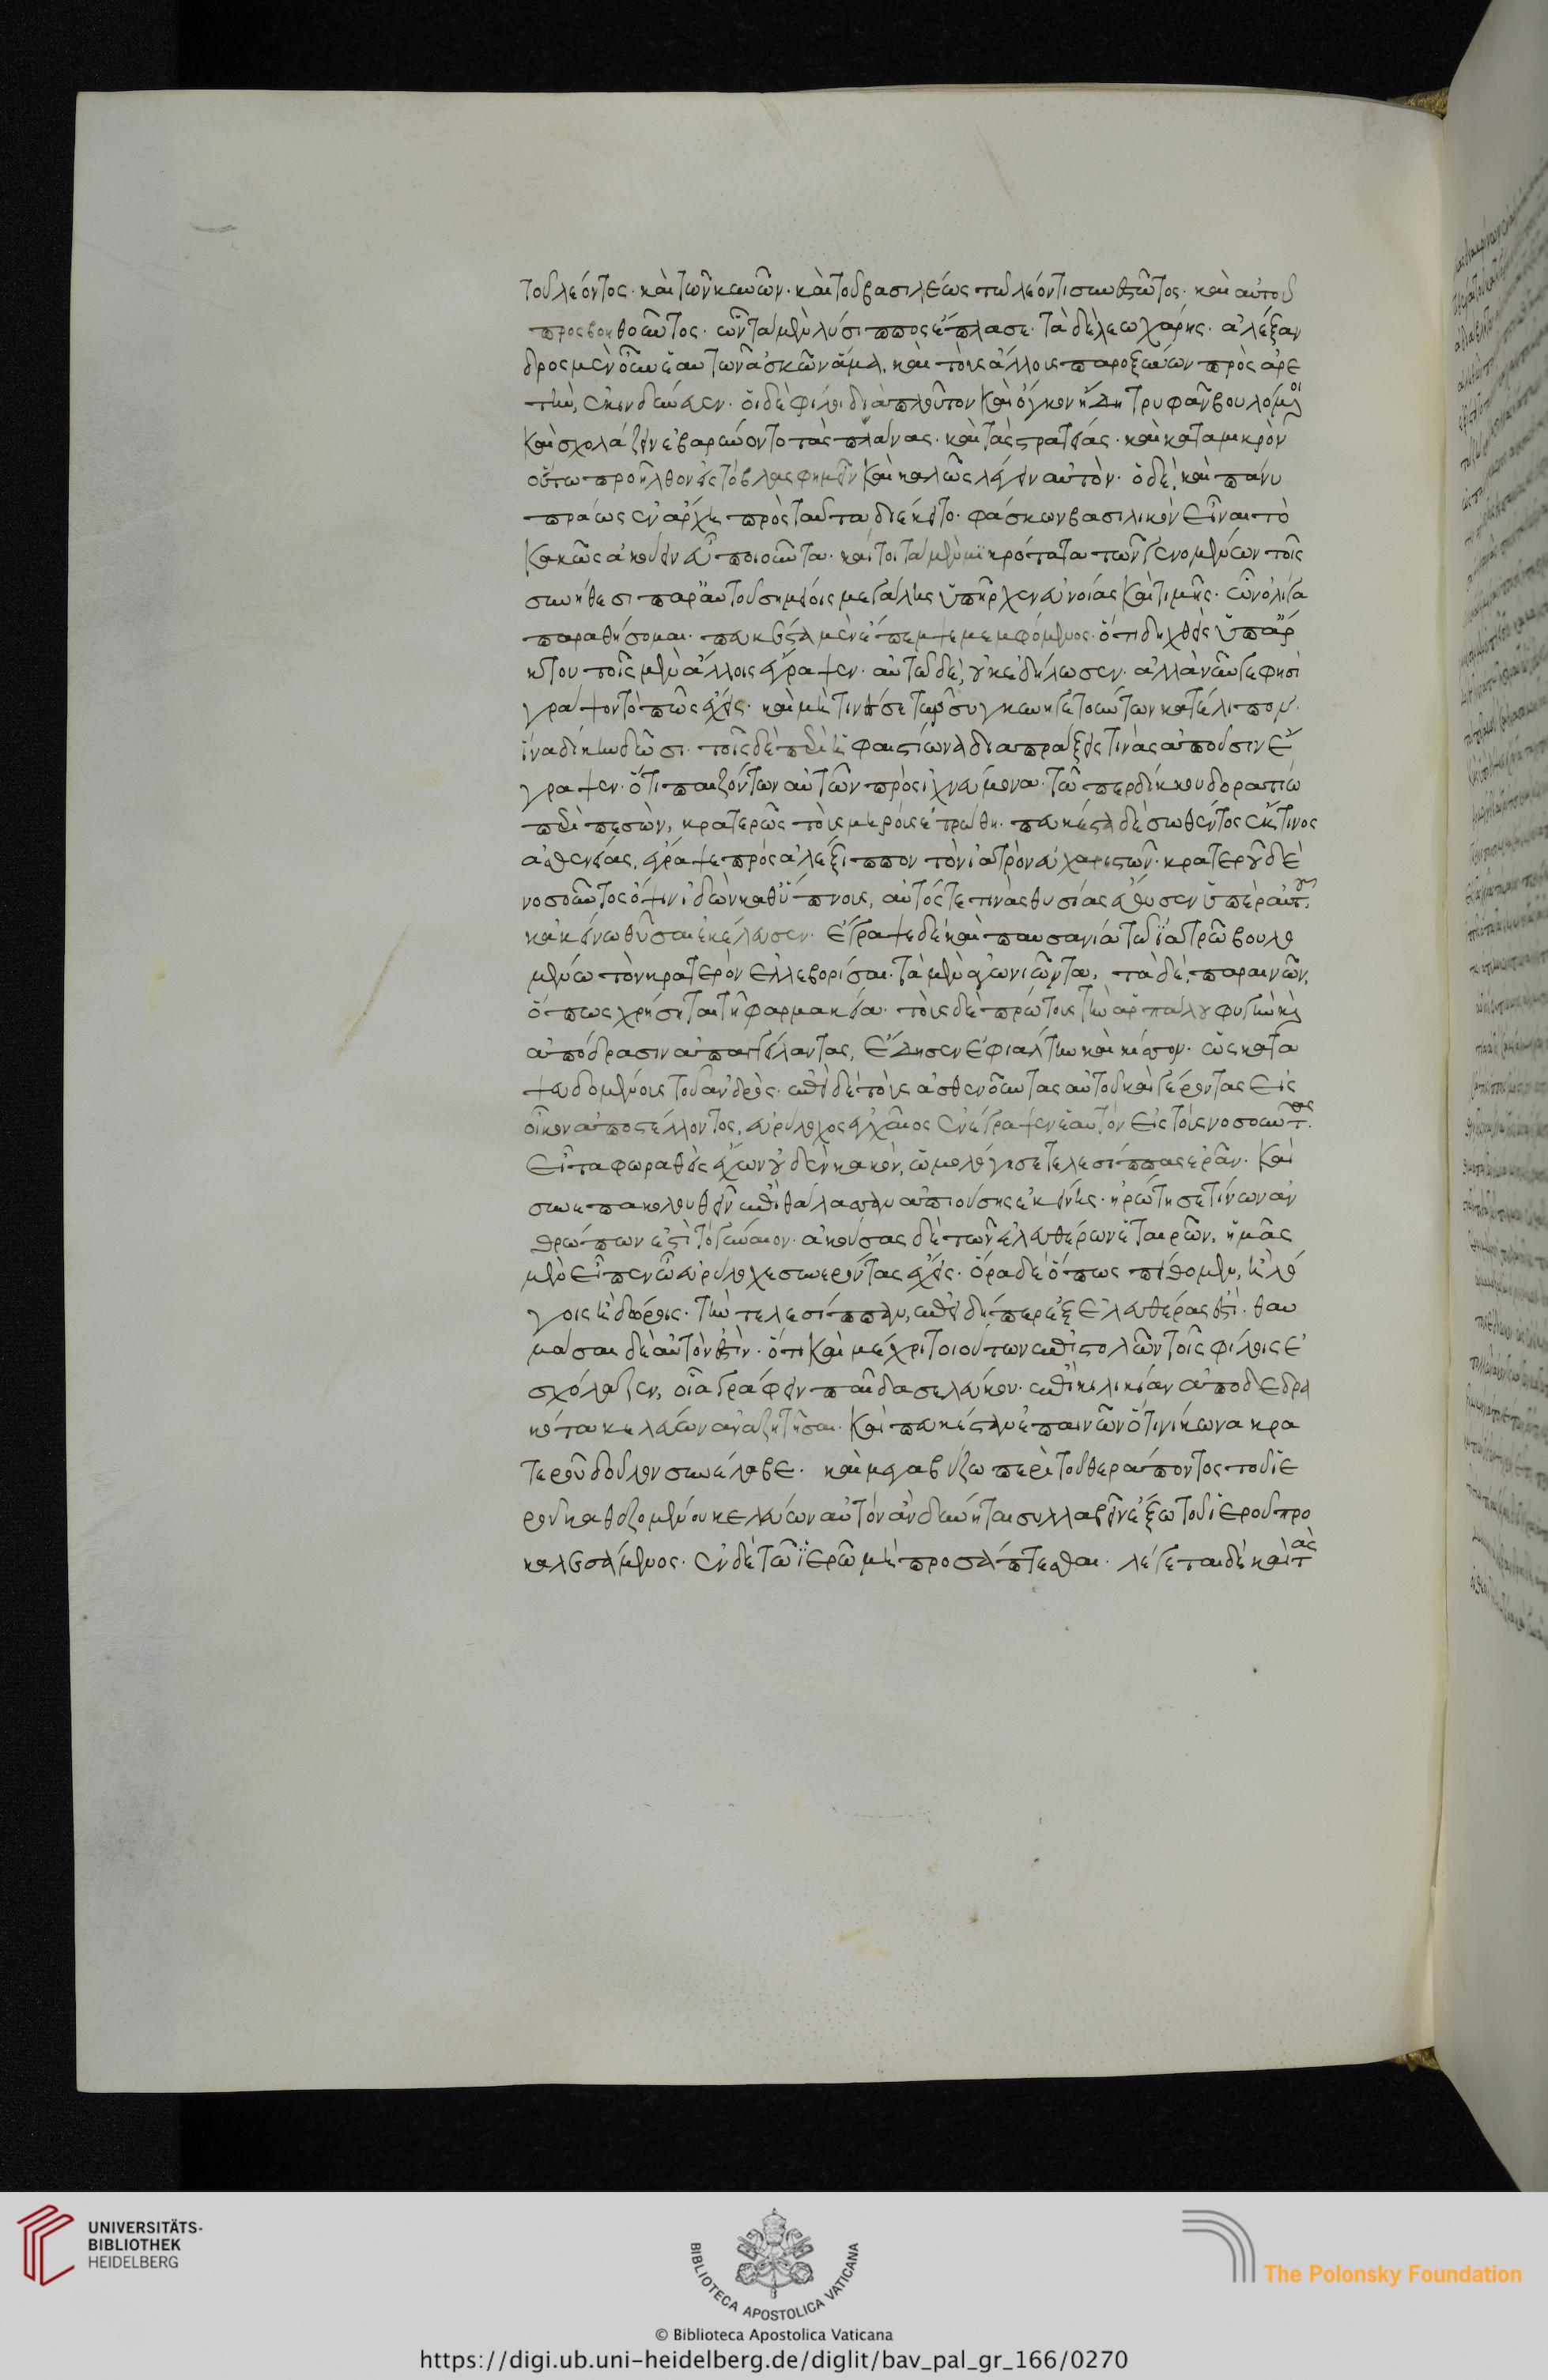 τοῦ λέοντος· καὶ τῶν κυνῶν· καὶ τοῦ βασιλέως τῶ λέοντι συνεστῶτος· καὶ αὐτοῦ
προσβοηθοῦντος· ὧν τὰ μὲν λύσιππος ἔπλασε· τὰ δὲ λεωχάρης· ἀλέξαν
δρος μὲν οὖν ἑαυτὸν ἀσκῶν ἅμα, καὶ τοὺς ἄλλους παροξύνων πρὸς ἀρε
τὴν, ἐκινδύνευεν· οἱ δὲ φίλοι διὰ πλοῦτον καὶ ὄγκον ἤδη τρυφᾶν βουλόμενοι
καὶ σχολάζειν ἐβαρύνοντο τὰς πλάνας· καὶ τὰς στρατείας· καὶ κατὰ μικρὸν
οὕτω προῆλθον εἰς τὸ βλασφημεῖν καὶ κακῶς λέγειν αὐτὸν· ὁ δὲ, καὶ πάνυ
πράως ἐν ἀρχῆ πρὸς ταῦτα διέκειτο· φάσκων βασιλικὸν εἶναι τὸ
κακῶς ἀκούειν εὖ ποιοῦντα· καίτοι τὰ μὲν μικρότατα τῶν γενομένων τοῖς
συνήθεσι παρ' αὐτοῦ σημεῖον μεγάλης ὑπῆρχεν εὐνοίας καὶ τιμῆς· ὧν ὀλίγα
παραθήσομαι· πευκέστα μὲν ἔπεμψε μεμφόμενος· ὅτι δηχθεὶς ὑπ' ἄρ
κτου τοῖς μὲν ἄλλοις ἔγραψεν· αὐτῶ δὲ, οὐκ ἐδήλωσεν· ἀλλὰ νῦν γε φησὶ
γράψον τὸ πῶς ἔχεις· καὶ μή τινές σε τῶν συγκυνηγετούντων κατέλιπον·
ἵνα δίκην δῶσι· τοῖς δὲ περὶ ἡφαιστίωνα διὰ πράξεις τινὰς ἀποῦσιν ἔ
γραψεν· ὅτι παιζόντων αὐτῶν πρὸς ἰχνεύμονα· τῶ περδίκκου δορατίω
περιπεσὼν, κρατερὸς τοὺς μηροὺς ἐτρώθη· πευκέστα δὲ σωθέντος ἔκ τινος
ἀσθενείας, ἔγραψε πρὸς ἀλέξιππον τὸν ἰατρὸν εὐχαριστῶν· κρατεροῦ δὲ
νοσοῦντος ὄψιν ἰδὼν καθ' ὕπνους, αὐτός τε τινὰς θυσίας ἔθυσεν ὑπὲρ αὐτοῦ,
κἀκεῖνω θῦσαι ἐκέλευσεν· ἔγραψε δὲ καὶ παυσανία τῶ ἰατρῶ βουλο
μένω τὸν κρατερὸν ἐλλεβορίσαι· τὰ μὲν ἀγωνιῶντα, τὰ δὲ, παραινῶν,
ὅπως χρήσηται τῆ φαρμακεία· τοὺς δὲ πρώτους τὴν ἁρπάλου φυγὴν καὶ
ἀπόδρασιν ἀπαγγείλαντας, ἔδησεν ἐφιάλτην καὶ κίσσον· ὡς κατα
ψευδομένους τοῦ ἀνδρὸς· ἐπεὶ δὲ τοὺς ἀσθενοῦντας αὐτοῦ καὶ γέροντας εἰς
οἶκον ἀποστέλλοντος, εὐρύλοχος αἰγαῖος ἐνέγραψεν ἑαυτὸν εἰς τοὺς νοσοῦντας.
εἶτα φωραθεὶς ἔχων οὐδὲν κακὸν, ὡμολόγησε τελεσίππας ἐρᾶν· καὶ
συνεπακολουθεῖν ἐπὶ θάλασσαν ἀπιούσης ἐκείνης· ἠρώτησε τίνων ἀν
θρώπων ἐστὶ τὸ γύναιον· ἀκούσας δὲ τῶν ἐλευθέρων ἑταιρῶν, ἡμᾶς
μὲν εἶπεν ὦ εὐρύλοχε συνερῶντας ἔχεις· ὅρα δὲ ὅπως πείθομεν, ἢ λό
γοις ἢ δώροις· τὴν τελεσίππαν, ἐπειδήπερ ἐξ ἐλευθέρας ἐστὶ· θαυ
μάσαι δὲ αὐτὸν ἔστιν· ὅτι καὶ μέχρι τοιούτων ἐπιστολῶν τοῖς φίλοις ἐ
σχόλαζεν, οἷα γράφειν παῖδα σελεύκου· ἐπὶ κιλικίαν ἀποδεδρα
κότα κελεύων ἀναζητῆσαι· καὶ πευκέσταν ἐπαινῶν ὅτι νίκωνα κρα
τεροῦ δοῦλον συνέλαβε· καὶ μεγαβύζω περὶ τοῦ θεράποντος τοῦ ἱε
ροῦ καθεζομένου κελεύων αὐτὸν ἂν δύνηται συλλαβεῖν ἔξω τοῦ ἱεροῦ προ
καλεσάμενος· ἐν δὲ τῶ ἱερῶ μὴ προσάπτεσθαι· λέγεται δὲ καὶ τὰς
UNIVERSITÄTS-
BIBLIOTHEK
HEIDELBERG
BIBLIOTECA APOSTOLICA VATICANA
The Polonsky Foundation
© Biblioteca Apostolica Vaticana
https://digi.ub.uni-heidelberg.de/diglit/bav_pal_gr_166/0270